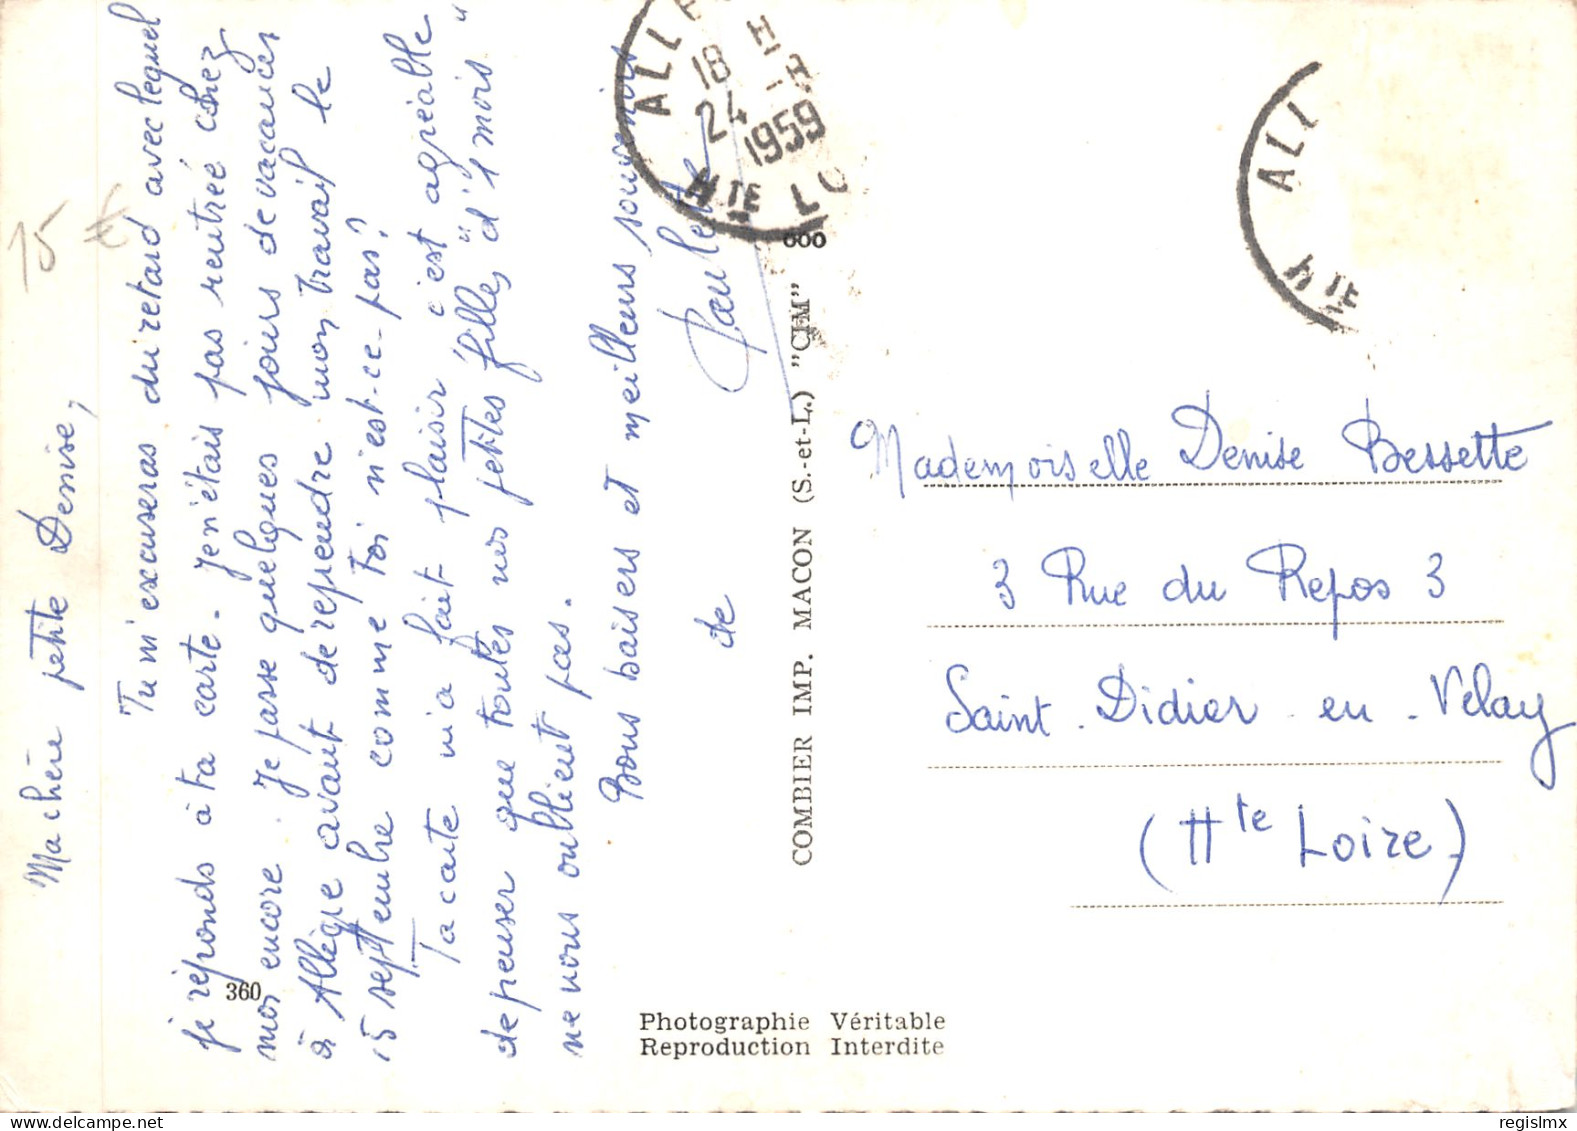 15 €
Ma chère petite Denise,
Tu m'excuseras du retard avec lequel
je réponds à ta carte. Je n'étais pas rentrée chez
moi encore. Je passe quelques jours de vacances
à Allègre avant de reprendre mon travail le
15 septembre comme toi n'est-ce-pas?
Ta carte m'a fait plaisir c'est agréable
de penser que toutes nos petites filles "d'1 mois"
ne nous oublient pas.
Bons baisers et meilleurs souvenirs
de Paulette
360
Photographie Véritable
Reproduction Interdite
COMBIER IMP. MACON (S.-et-L.) "CIM"
18 H
24 -8
1959
HTE LO
ALL
HTE
Mademoiselle Denise Bessette
3 Rue du Repos 3
Saint-Didier-en-Velay
(Hte Loire)
regislmx